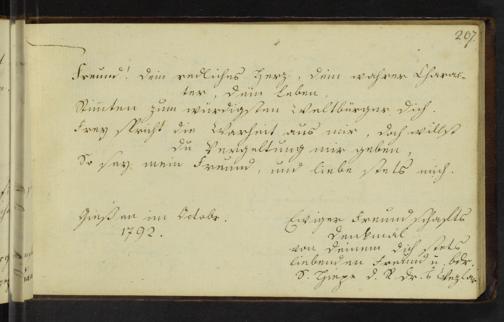 207.
Freund! dein redliches Herz, dein wahrer Charac-
ter, dein Leben,
Stimten zum würdigsten Weltbürger dich.
Frey spricht die Warheit aus mir, doch willst
du Vergeltung mir geben,
So sey mein Freund, und liebe stets mich.
Giessen im Octobr.
1792.
Ewiger Freundschafts
Denkmal
von deinem dich stets
liebenden Freund u. Bdr.
d. R. Dr. Wezlar